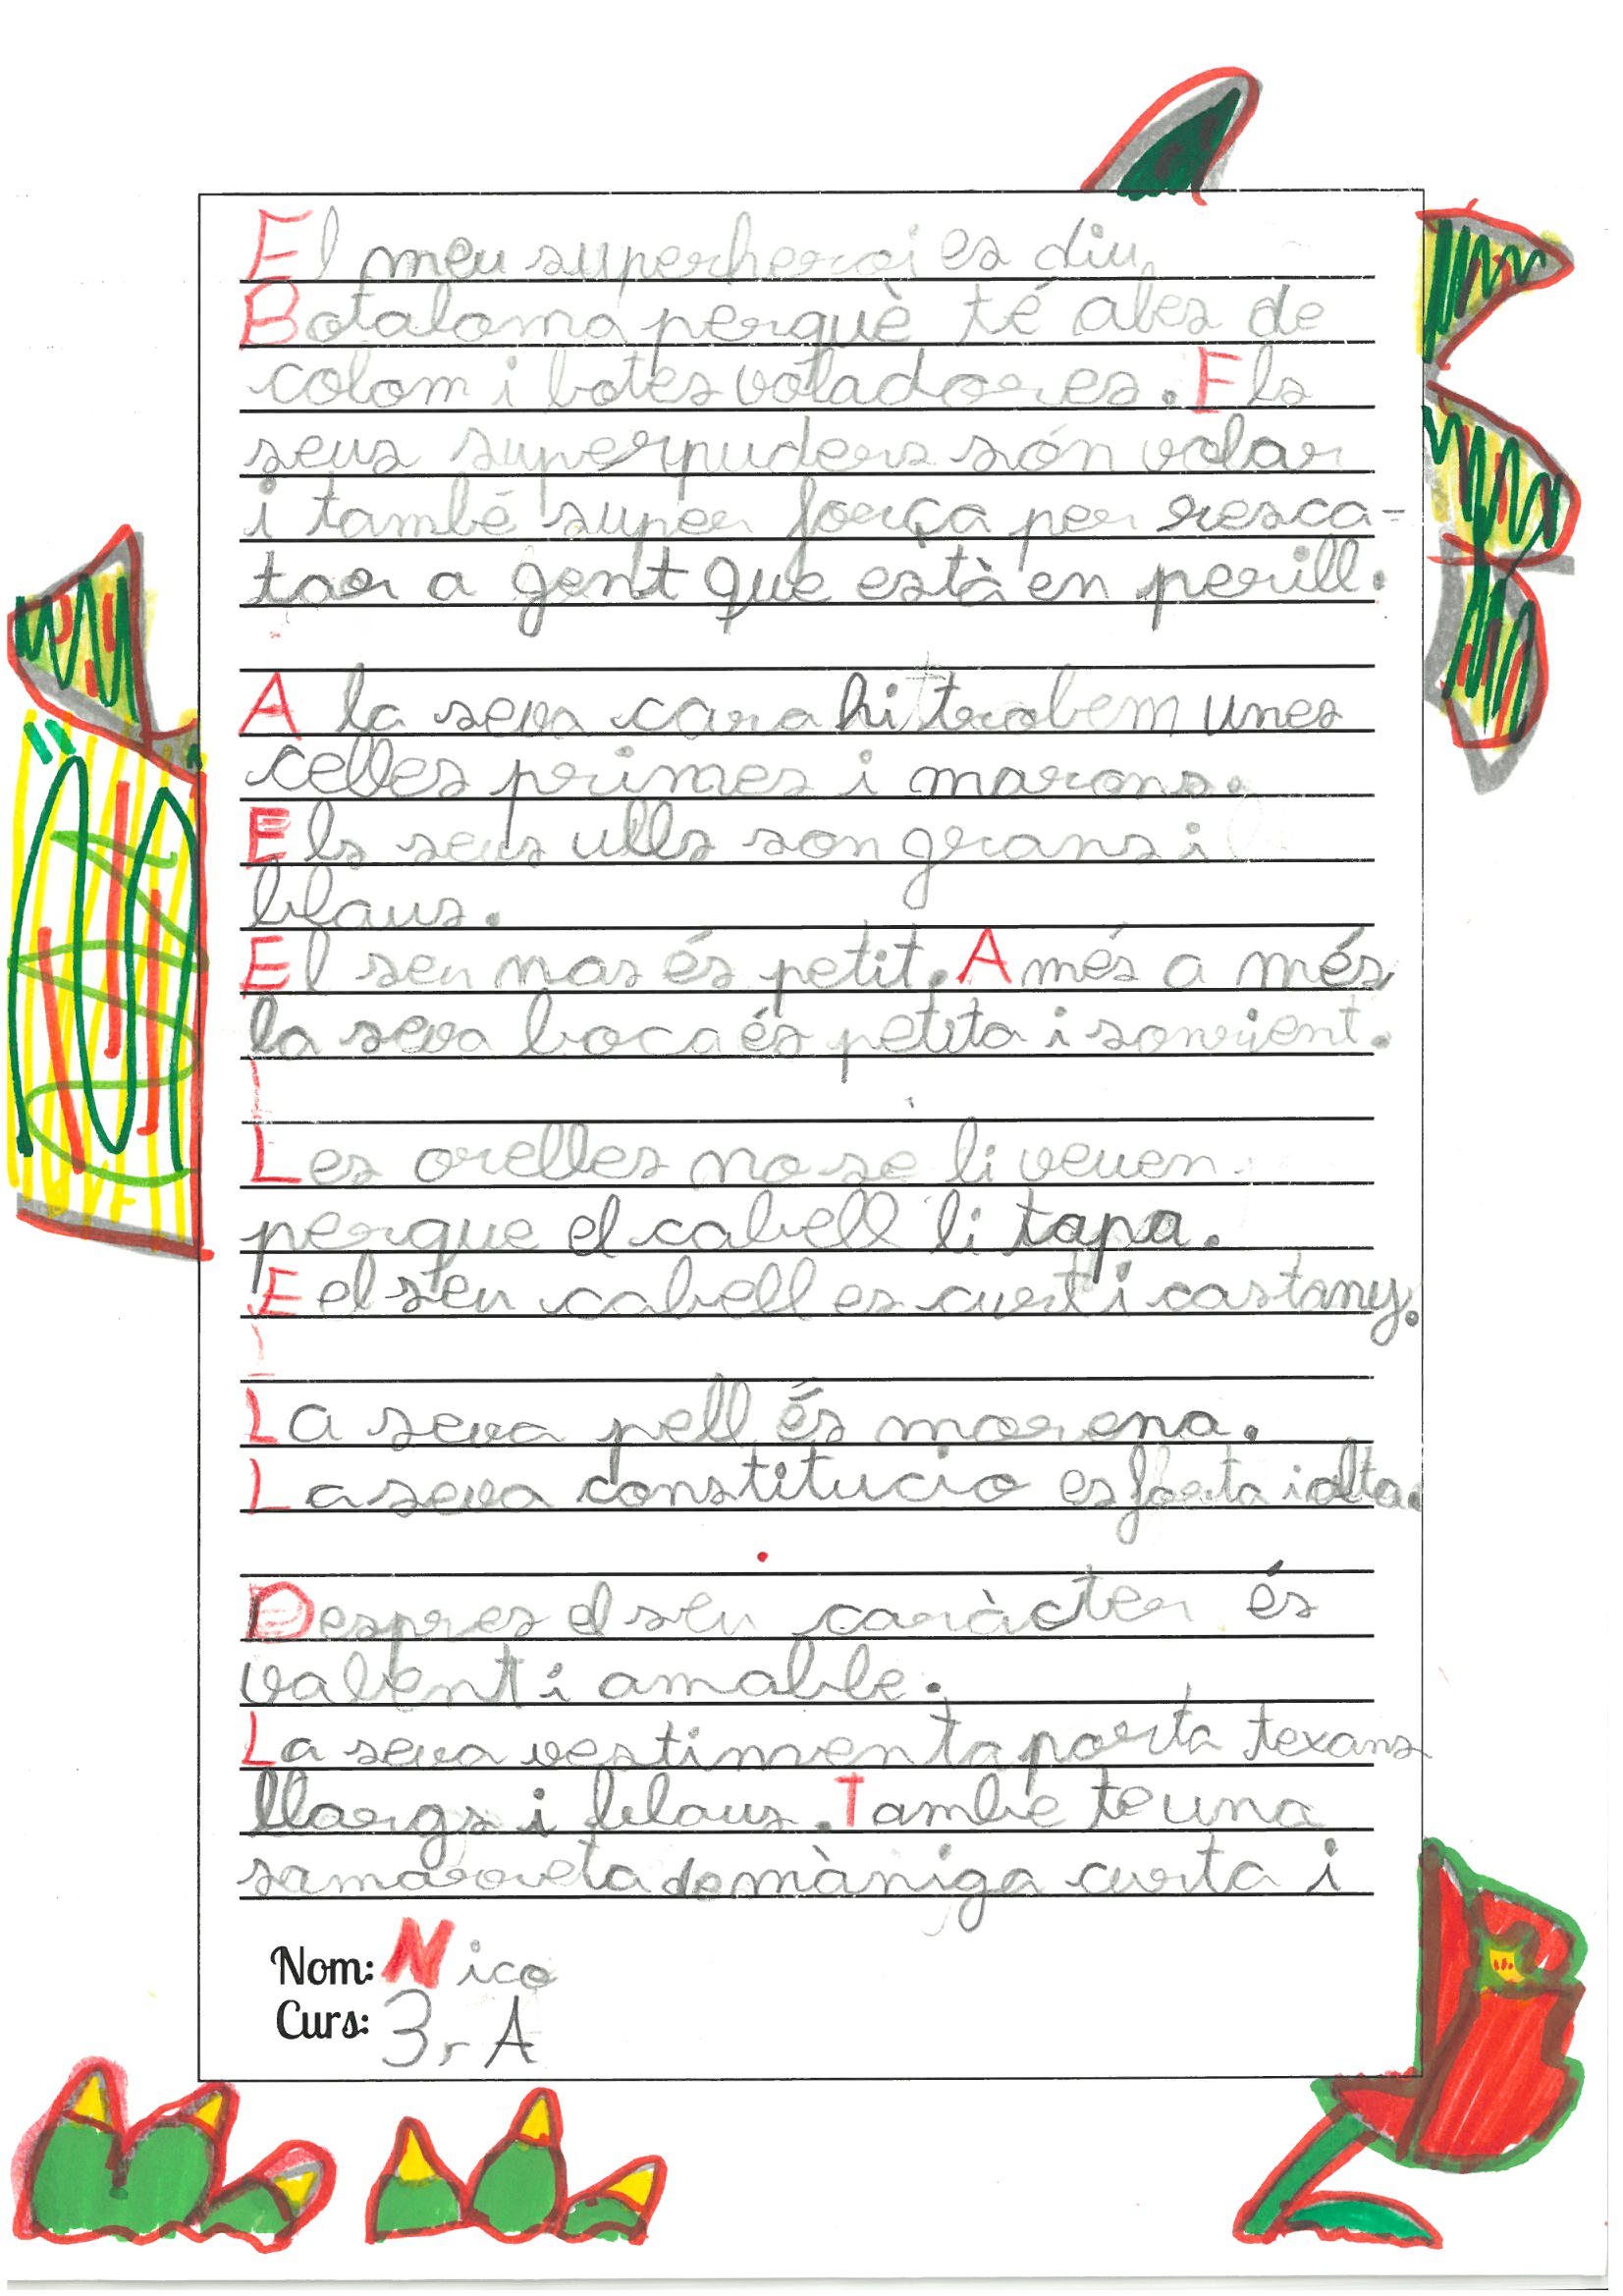 El meu superheroi es diu
Botaloma perquè té ales de
colom i botes voladores. Els
seus superpuders són volar
i també super força per resca-
tar a gent que està en perill.
A la seva cara hi trobem unes
celles primes i marons.
Els seus ulls son grans i
blaus.
El seu nas és petit. A més a més
la seva boca és petita i sonrient.
Les orelles no se li veuen
perque el cabell li tapa.
E el seu cabell es curt i castany.
La seva pell és morena.
La seva constitucio es forta i alta.
Despres el seu caràcter és
valent i amable.
La seva vestimenta porta texans
llargs i blaus. Tambe te una
samarreta de màniga curta i
Nom: Nico
Curs: 3r A